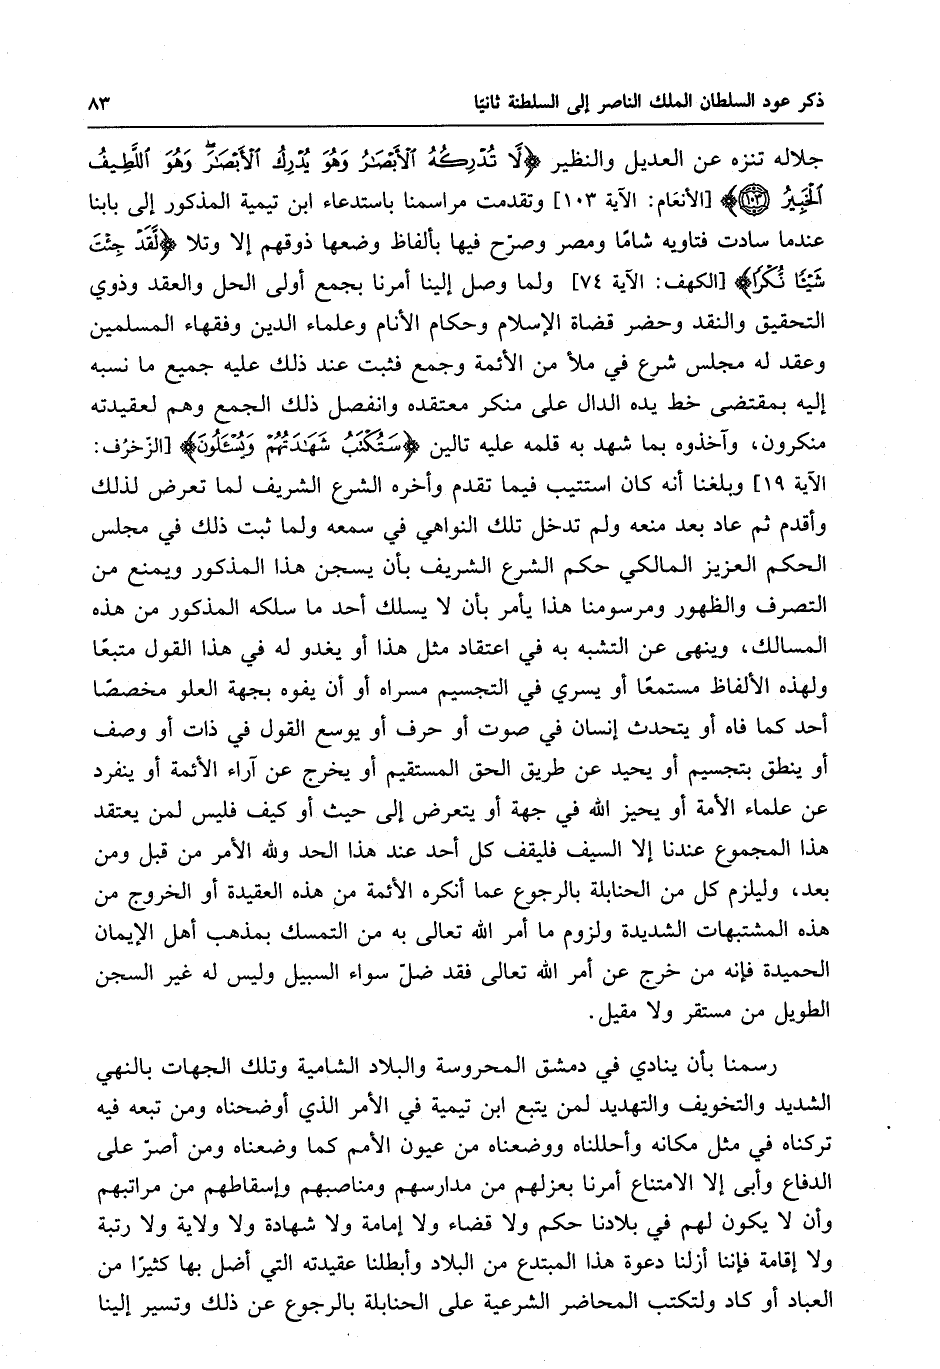 ذكر عود السلطان الملك الناصر إلى السلطنة ثانيًا ٨٣
جلاله تنزه عن العديل والنظير ﴿لَّا تُدْرِكُهُ ٱلْأَبْصَٰرُ وَهُوَ يُدْرِكُ ٱلْأَبْصَٰرَۖ وَهُوَ ٱللَّطِيفُ
ٱلْخَبِيرُ ١٠٣﴾ [الأنعَام: الآية ١٠٣] وتقدمت مراسمنا باستدعاء ابن تيمية المذكور إلى بابنا
عندما سادت فتاويه شامًا ومصر وصرّح فيها بألفاظ وضعها ذوقهم إلا وتلا ﴿لَّقَدْ جِئْتَ
شَيْـًٔا نُّكْرًا﴾ [الكهف: الآية ٧٤] ولما وصل إلينا أمرنا بجمع أولى الحل والعقد وذوي
التحقيق والنقد وحضر قضاة الإسلام وحكام الأنام وعلماء الدين وفقهاء المسلمين
وعقد له مجلس شرع في ملأ من الأئمة وجمع فثبت عند ذلك عليه جميع ما نسبه
إليه بمقتضى خط يده الدال على منكر معتقده وانفصل ذلك الجمع وهم لعقيدته
منكرون، وآخذوه بما شهد به قلمه عليه تالين ﴿سَتُكْتَبُ شَهَٰدَتُهُمْ وَيُسْـَٔلُونَ﴾ [الزّخرُف:
الآية ١٩] وبلغنا أنه كان استتيب فيما تقدم وأخره الشرع الشريف لما تعرض لذلك
وأقدم ثم عاد بعد منعه ولم تدخل تلك النواهي في سمعه ولما ثبت ذلك في مجلس
الحكم العزيز المالكي حكم الشرع الشريف بأن يسجن هذا المذكور ويمنع من
التصرف والظهور ومرسومنا هذا يأمر بأن لا يسلك أحد ما سلكه المذكور من هذه
المسالك، وينهى عن التشبه به في اعتقاد مثل هذا أو يغدو له في هذا القول متبعًا
ولهذه الألفاظ مستمعًا أو يسري في التجسيم مسراه أو أن يفوه بجهة العلو مخصصًا
أحد كما فاه أو يتحدث إنسان في صوت أو حرف أو يوسع القول في ذات أو وصف
أو ينطق بتجسيم أو يحيد عن طريق الحق المستقيم أو يخرج عن آراء الأئمة أو ينفرد
عن علماء الأمة أو يحيز الله في جهة أو يتعرض إلى حيث أو كيف فليس لمن يعتقد
هذا المجموع عندنا إلا السيف فليقف كل أحد عند هذا الحد ولله الأمر من قبل ومن
بعد، وليلزم كل من الحنابلة بالرجوع عما أنكره الأئمة من هذه العقيدة أو الخروج من
هذه المشتبهات الشديدة ولزوم ما أمر الله تعالى به من التمسك بمذهب أهل الإيمان
الحميدة فإنه من خرج عن أمر الله تعالى فقد ضلّ سواء السبيل وليس له غير السجن
الطويل من مستقر ولا مقيل.
رسمنا بأن ينادي في دمشق المحروسة والبلاد الشامية وتلك الجهات بالنهي
الشديد والتخويف والتهديد لمن يتبع ابن تيمية في الأمر الذي أوضحناه ومن تبعه فيه
تركناه في مثل مكانه وأحللناه ووضعناه من عيون الأمم كما وضعناه ومن أصرّ على
الدفاع وأبى إلا الامتناع أمرنا بعزلهم من مدارسهم ومناصبهم وإسقاطهم من مراتبهم
وأن لا يكون لهم في بلادنا حكم ولا قضاء ولا إمامة ولا شهادة ولا ولاية ولا رتبة
ولا إقامة فإننا أزلنا دعوة هذا المبتدع من البلاد وأبطلنا عقيدته التي أضل بها كثيرًا من
العباد أو كاد ولتكتب المحاضر الشرعية على الحنابلة بالرجوع عن ذلك وتسير إلينا